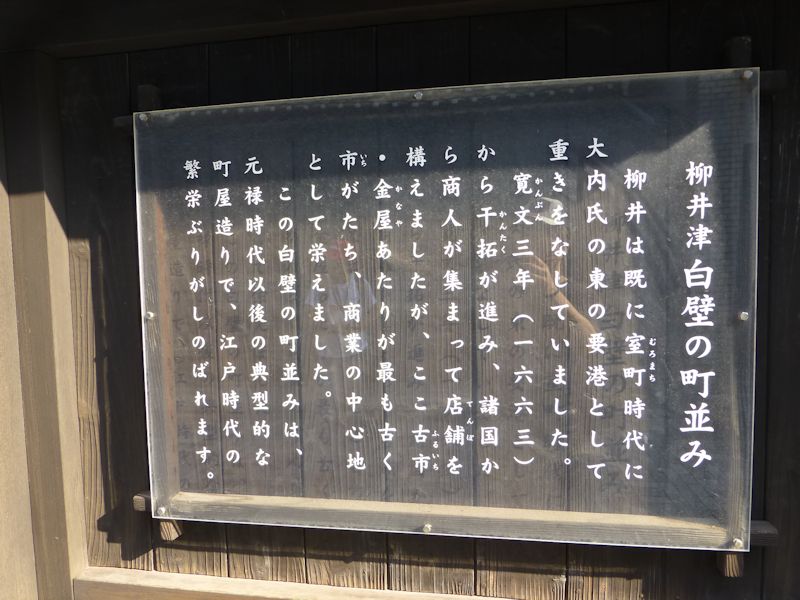 柳井津白壁の町並み
柳井は既に室町時代に
大内氏の東の要港として
重きをなしていました。
寛文三年（一六六三）
から干拓が進み、諸国か
ら商人が集まって店舗を
構えましたが、ここ古市
・金屋あたりが最も古く
市がたち、商業の中心地
として栄えました。
この白壁の町並みは、
元禄時代以後の典型的な
町屋造りで、江戸時代の
繁栄ぶりがしのばれます。